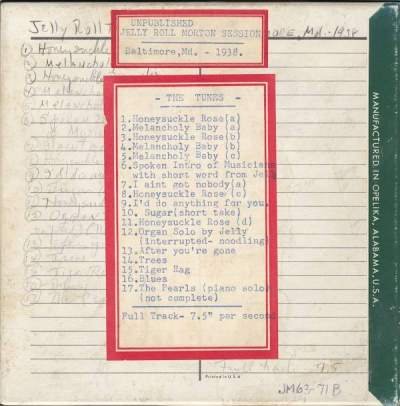 Jelly Roll
UNPUBLISHED
JELLY ROLL MORTON SESSION
Baltimore, Md. - 1938.
ORE, Md.-1938
① Honeysuckle
② Melanchol
③ Honeysuckl
- THE TUNES -
1. Honeysuckle Rose(a)
2. Melancholy Baby (a)
3. Honeysuckle Rose(b)
4. Melancholy Baby (b)
5. Melancholy Baby (c)
6. Spoken Intro of Musicians
with short word from Jelly
7. I aint got nobody(a)
8. Honeysuckle Rose (c)
9. I'd do anything for you.
10. Sugar(short take)
11. Honeysuckle Rose (d)
12. Organ Solo by Jelly
(interrupted- noodling)
13. After you're gone
14. Trees
15. Tiger Rag
16. Blues
17. The Pearls (piano solo)
(not complete)
Full Track- 7.5" per second
Full track 7.5
Printed in U.S.A.
JM63-71B
MANUFACTURED IN OPELIKA, ALABAMA, U.S.A.